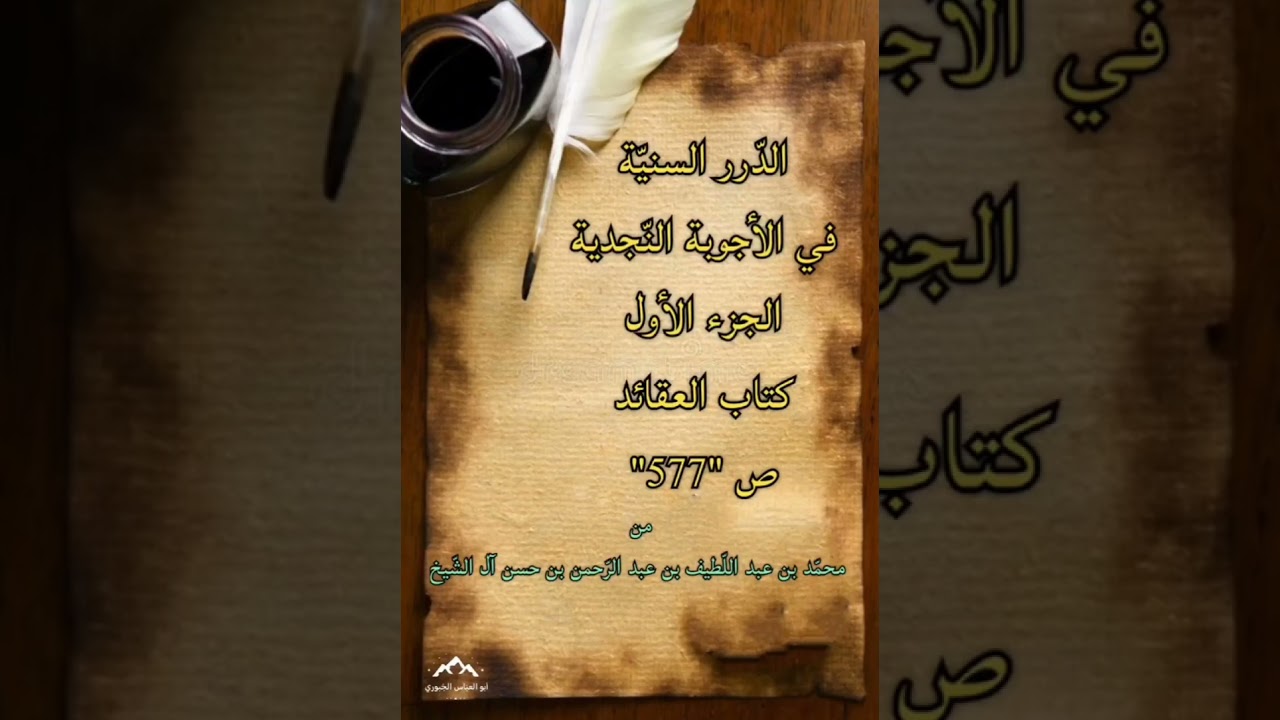 الدّرر السنيّة
في الأجوبة النّجدية
الجزء الأول
كتاب العقائد
ص "577"
من
محمّد بن عبد اللّطيف بن عبد الرّحمن بن حسن آل الشّيخ
أبو العباس الجبوري
في الأجو
الجز
كتاب
ص